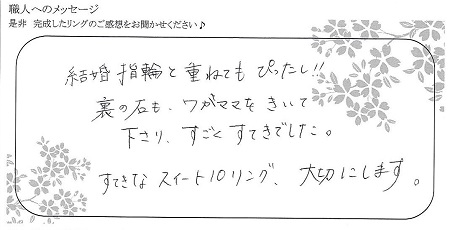 職人へのメッセージ
是非 完成したリングのご感想をお聞かせください♪
結婚指輪と重ねてもぴったし!!
裏の石も、ワガママをきいて
下さり、すごくすてきでした。
すてきなスイート10リング、大切にします。